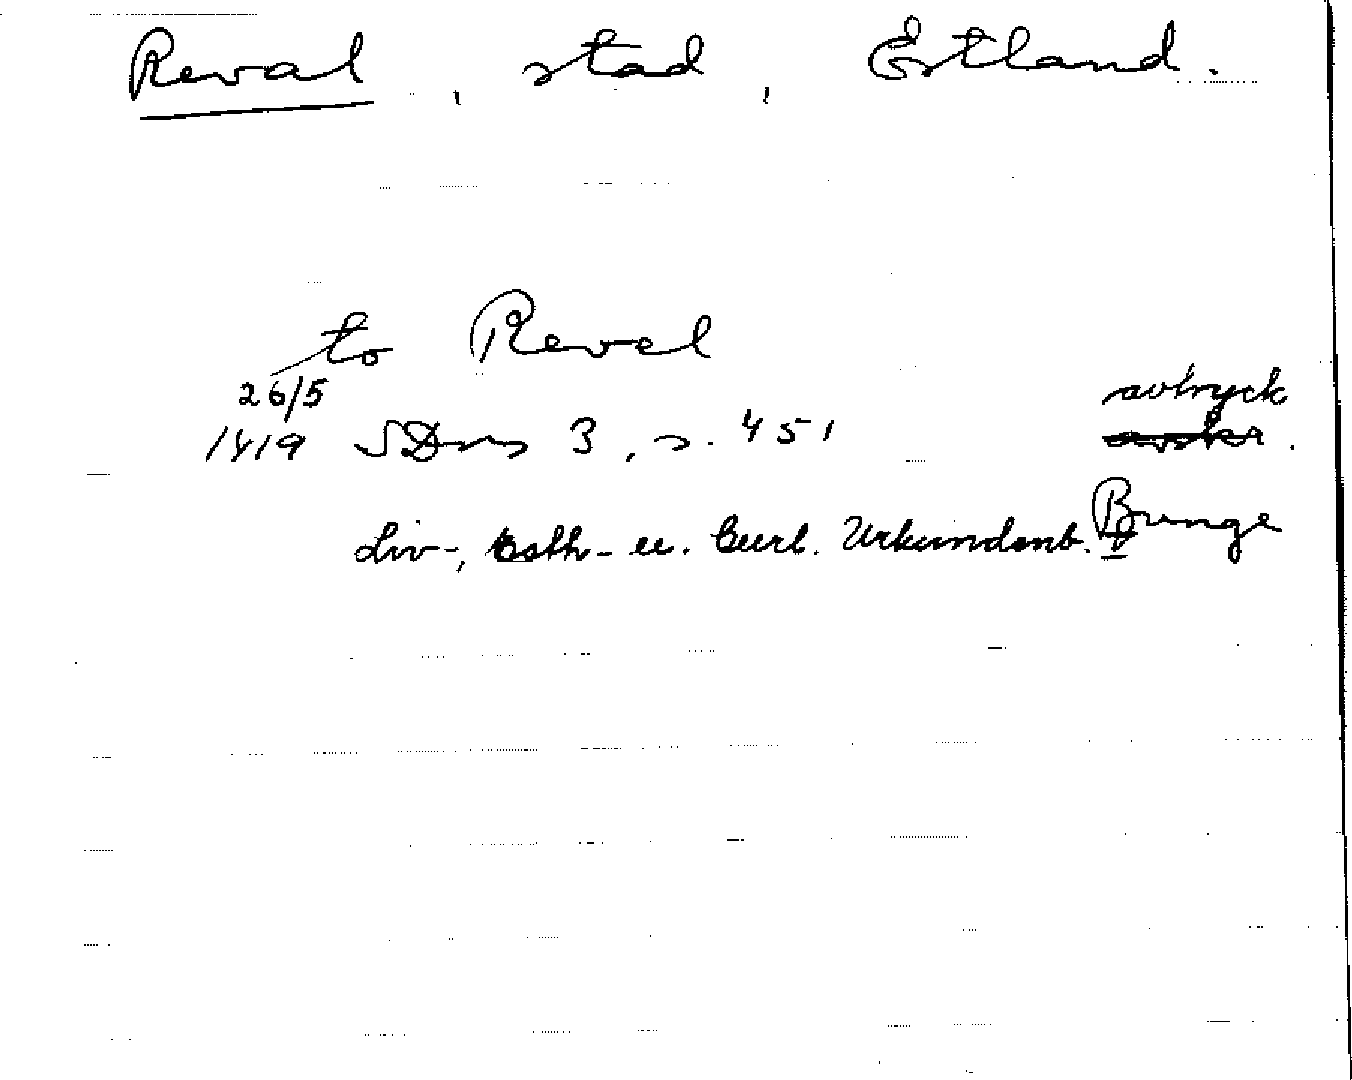 Reval, stad, Estland.
to Reval
26/5
1419 SDns 3, s. 451
avtryck
avskr.
Liv-, Esth- u. Curl. Urkundenb. Bunge
V